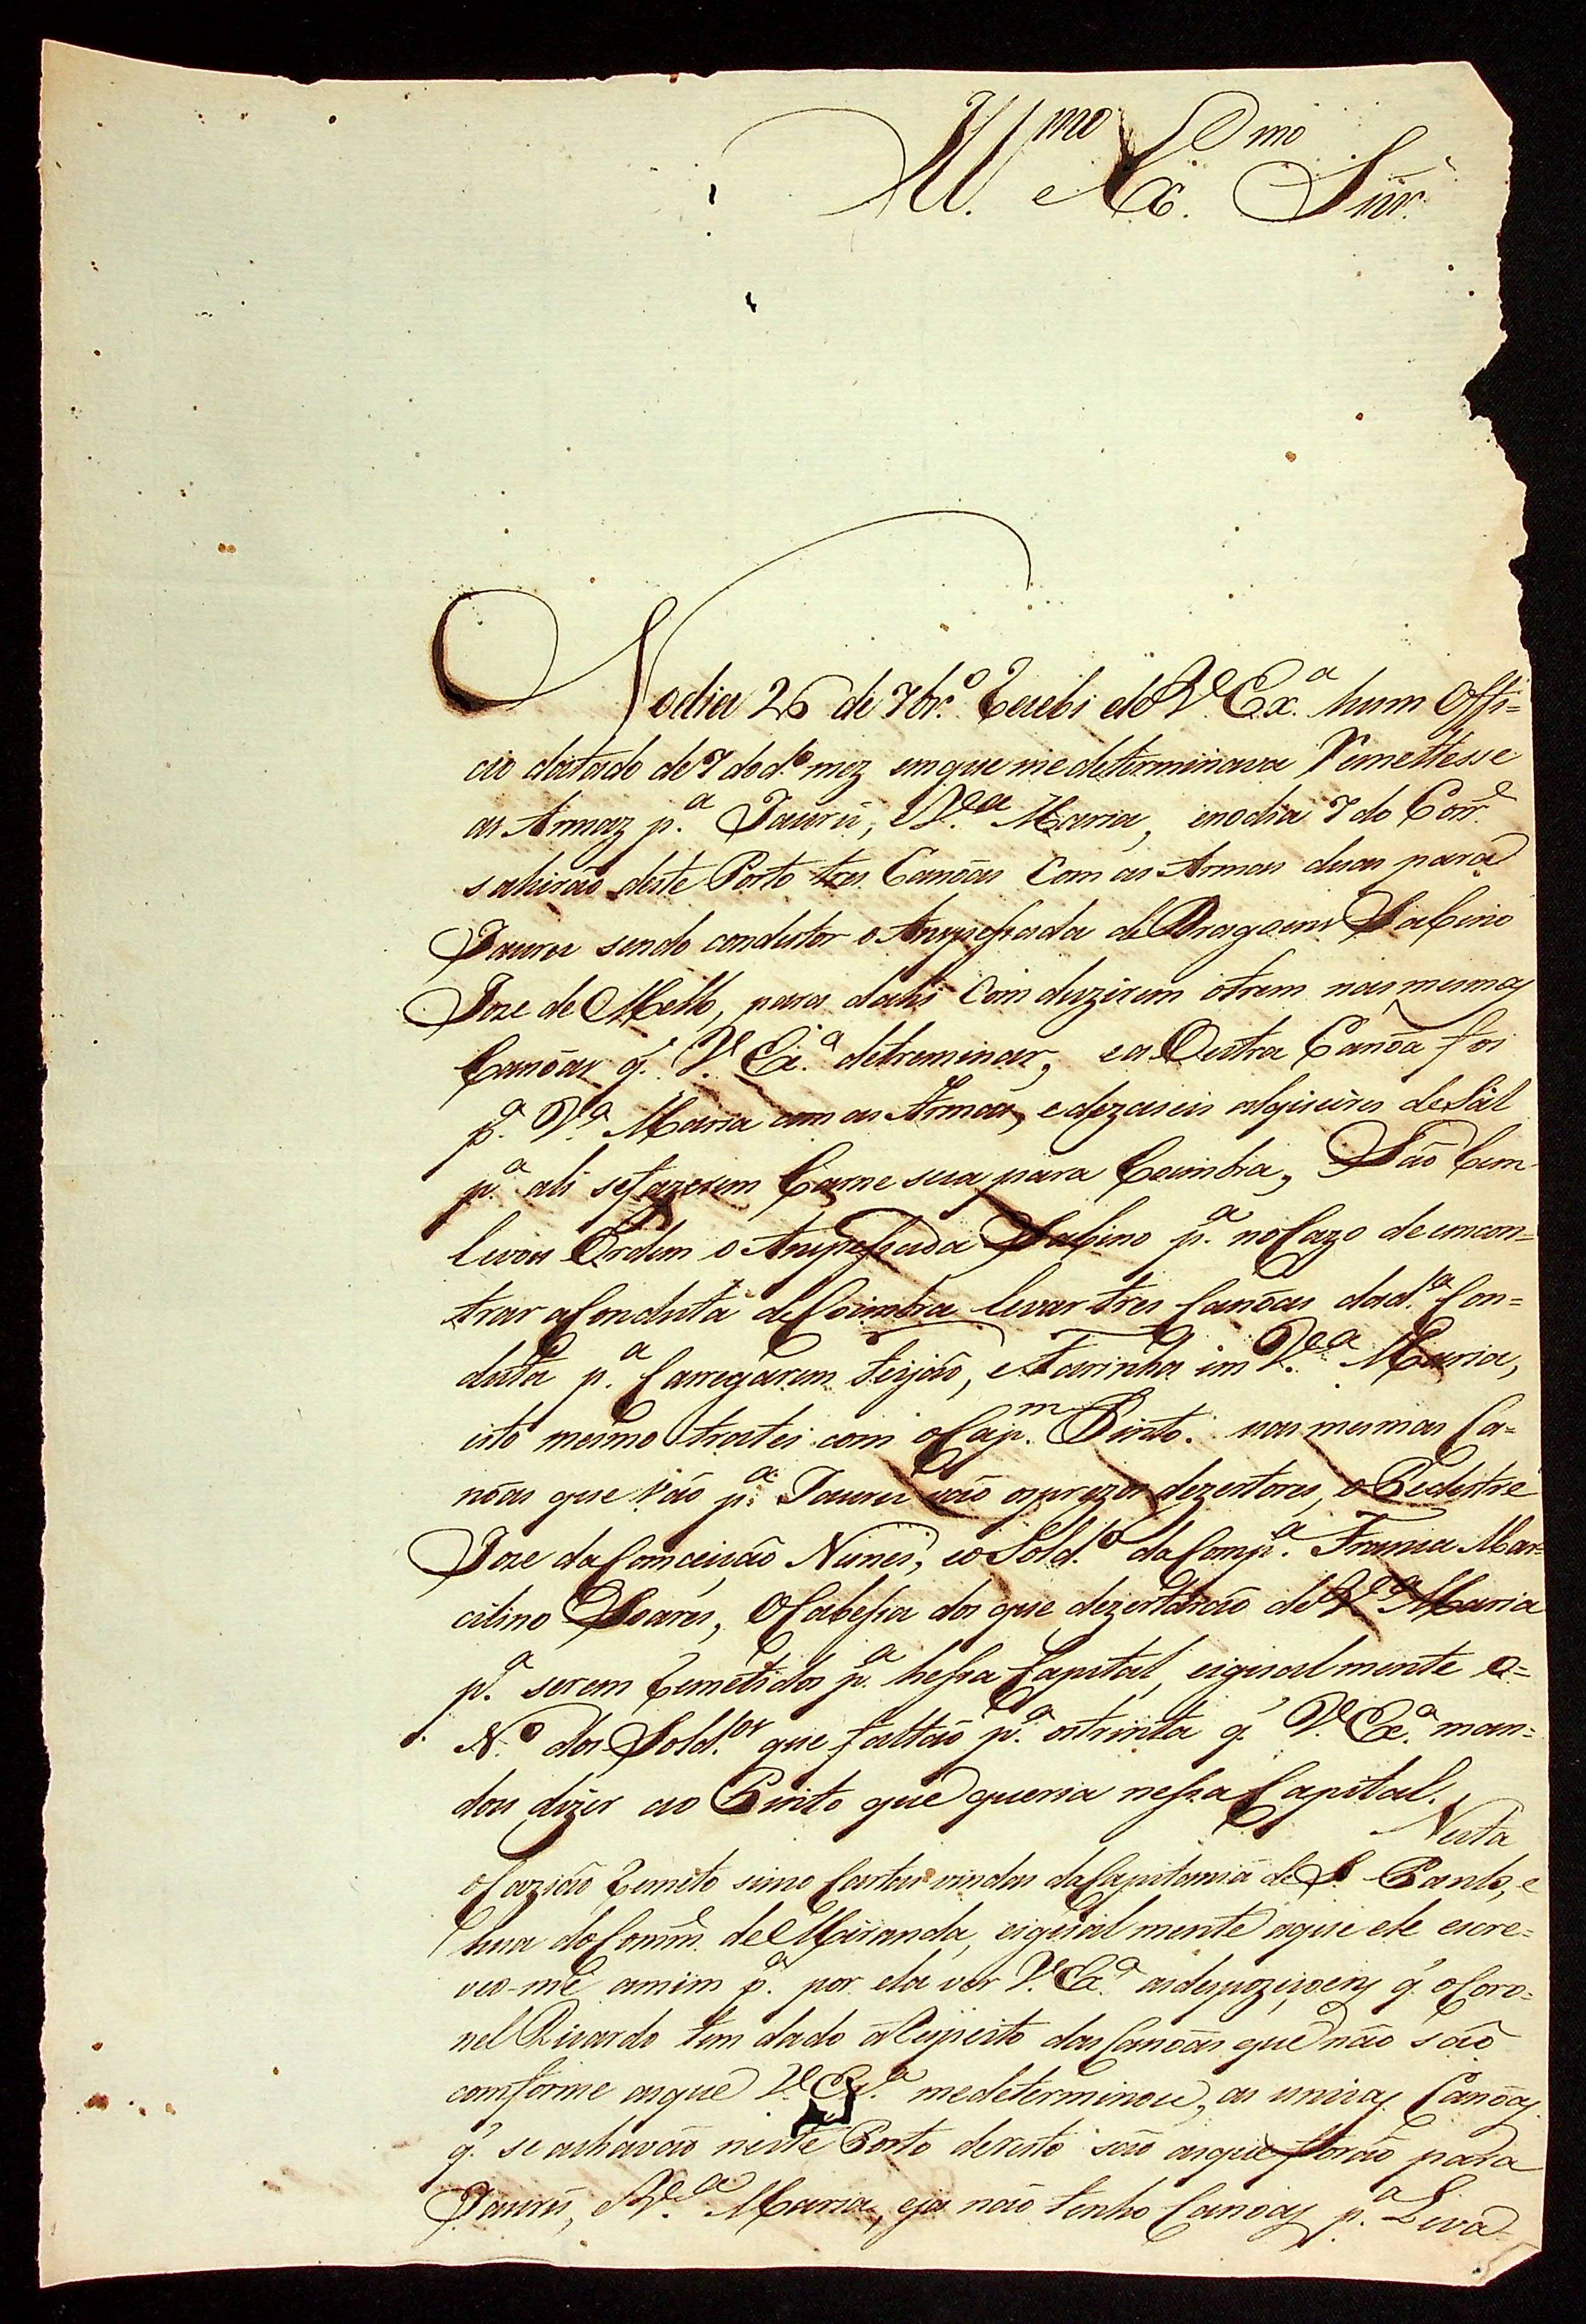 Ill.mo e Ex.mo Snr.
No dia 26 de 7br.o Recebi de V. Ex.a hum Offi=
cio datado de 7 do d.o mez em que me determinava Remettesse
as Armaz p.a Jaurú, e V.a Maria, e no dia 7 do Corr.e
sahirão deste Porto tres Canôas Com as Armas duas para
Jauru sendo condutor o Anspessada de Dragoens Sabino
Joze de Mello, para dahi Com duzirem o trem nas mesmas
Canôas q. V. Ex.a detreminar, e a Outra Canôa foi
p.a V.a Maria com as Armas, e dezaseis alqueires de Sal
p.a ali se fazerem Carne seca para Coimbra, São bem
levou Ordem o Anspessada Sabino p.a no Cazo de encon=
trar a Conduta de Coimbra levar tres Canôas da d.ta Con=
duta p.a Carregarem feijão, e Farinha im V.a Maria,
isto mesmo tratei com o Cap.m Pinto. nas mesmas Ca=
nôas que vão p.a Jauru vão os prezos dezertores, o Pedestre
Joze da Conceição Nunes, e o Sold.o da Comp.a Franca Mar=
celino Soares, O Cabessa dos que dezertárão de V.a Maria
p.a serem Remetidos p.a hessa Capital, e igualmente o=
N.o dos Sold.os que faltão p.a os trinta q. V. Ex.a man=
dou dizer ao Pinto que queria nessa Capital.
Nesta
oCazião Remeto sinco Cartas vindas da Capitania de S. Paulo, e
hua do Comm.e de Miranda, e igualmente a que ele escre=
veo-me a mim p.a por ela ver V. Ex.a as despoziçoens q. o Coro=
nel Ricardo tem dado a Respeito das Canôas que não são
comforme as que V. Ex.a me determinou, as unicas Canôas
q. se achavão neste Porto de Resto são as que forão para
Jaurú, e V.a Maria, e ja não tenho Canoas p.a Leva